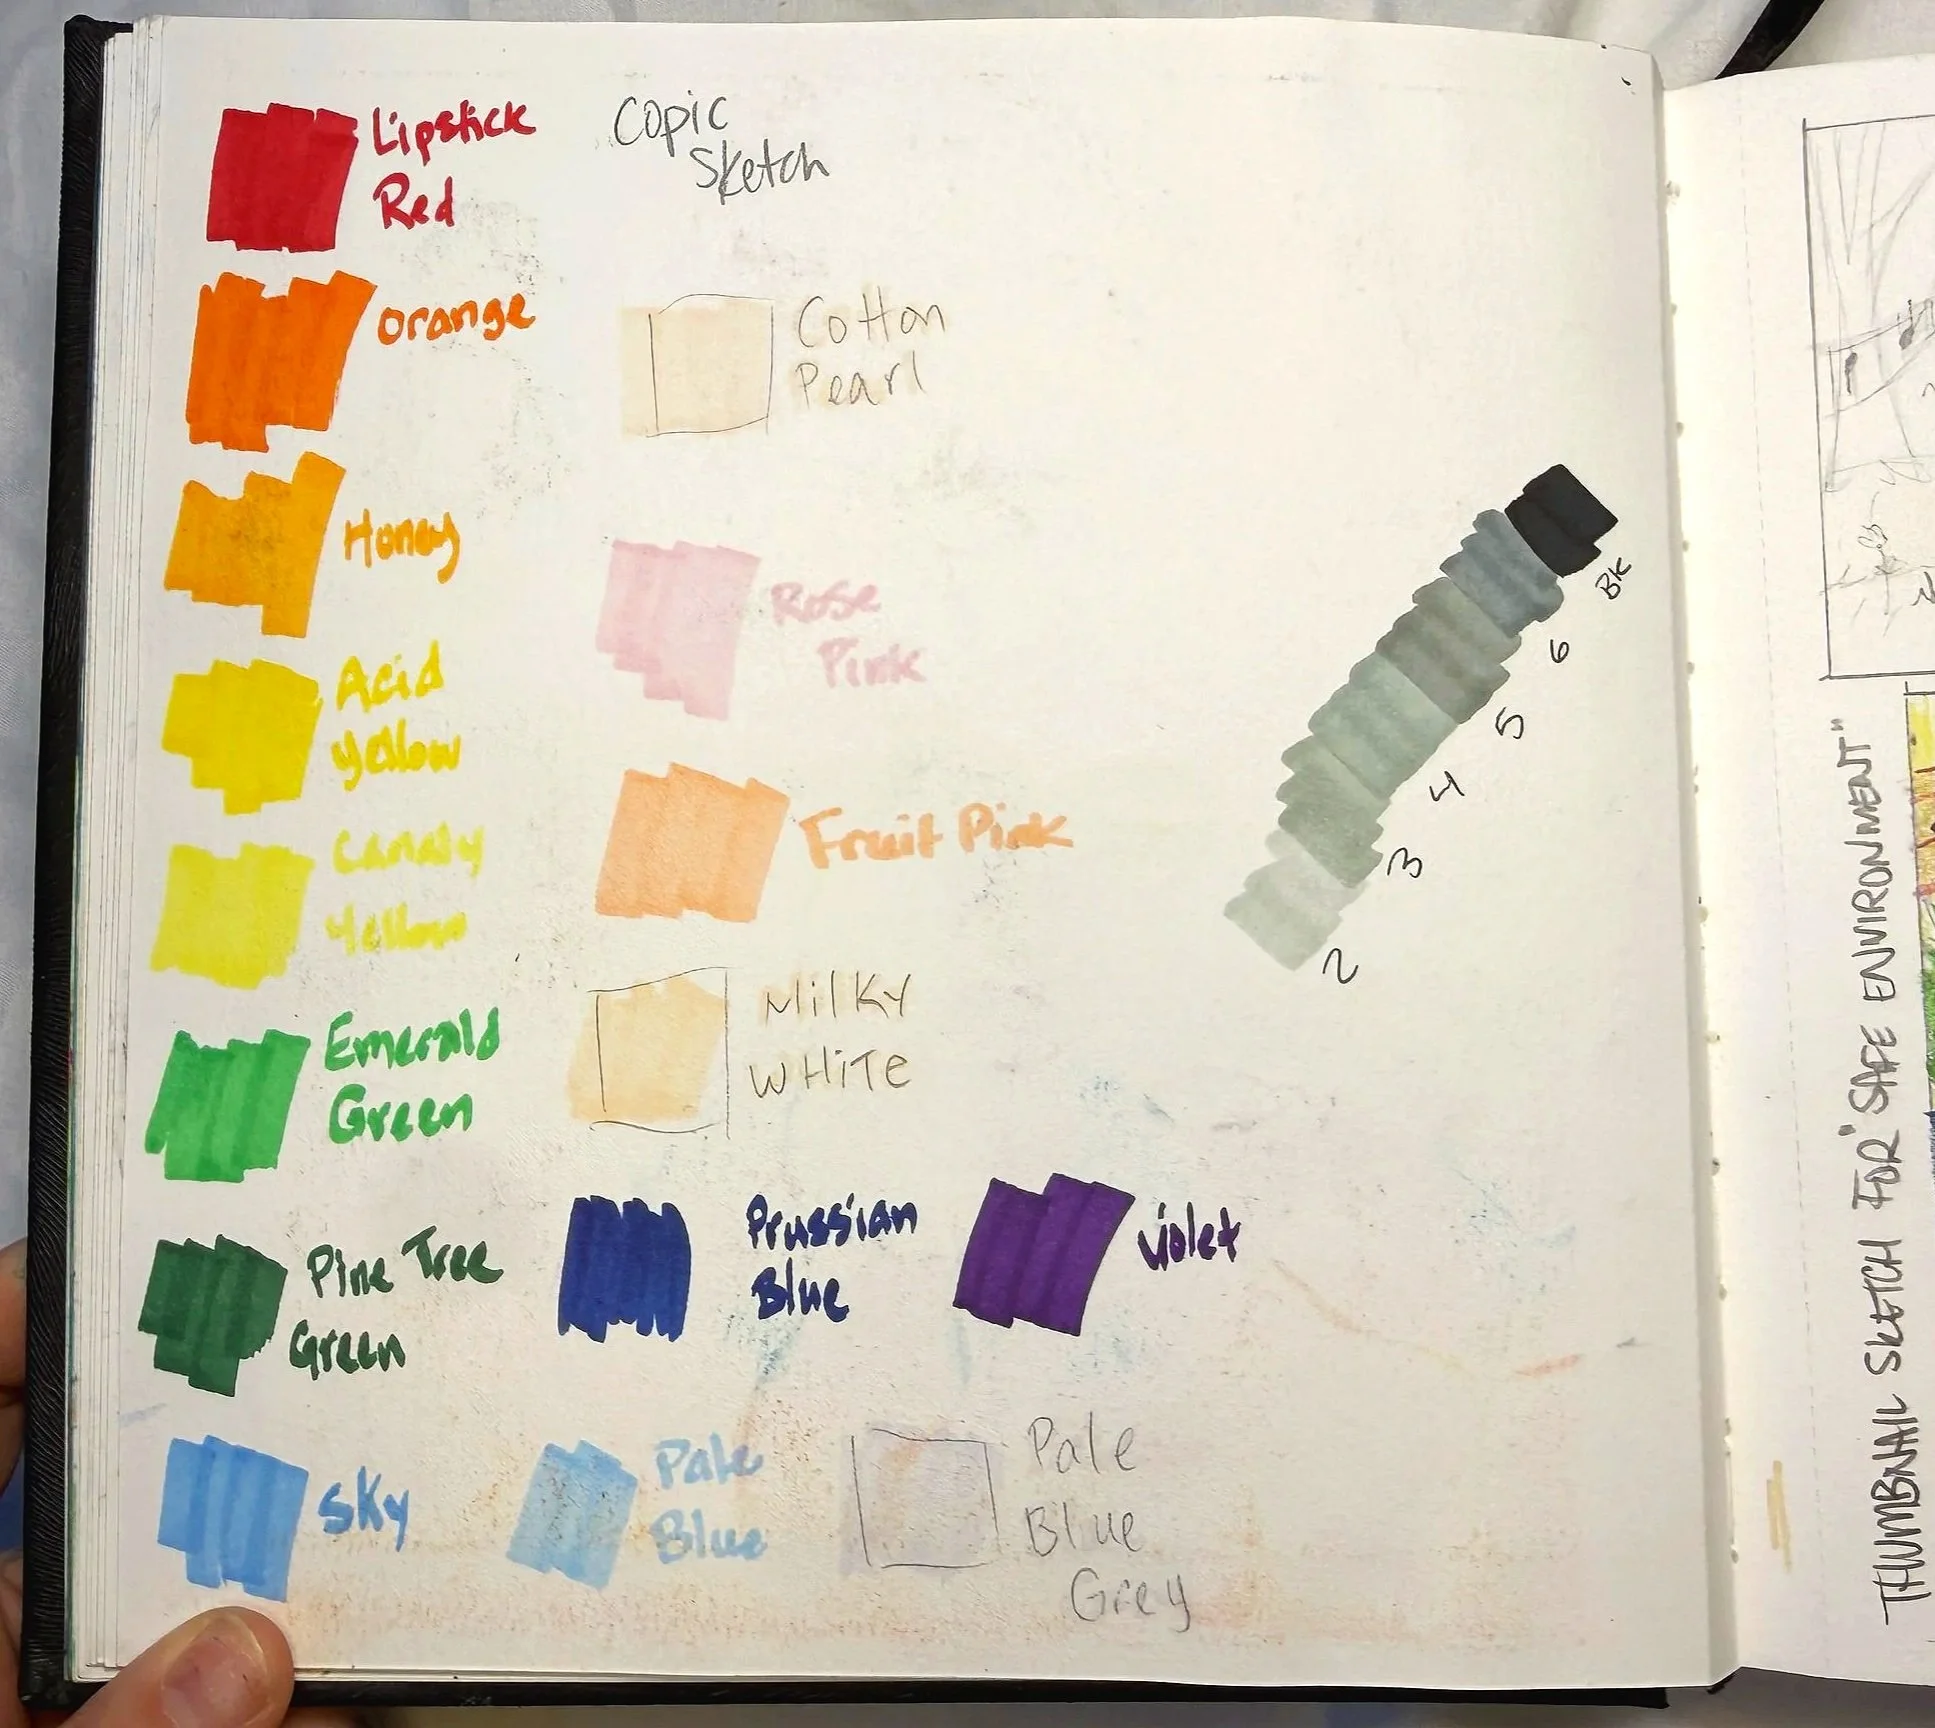 Lipstick
Red
Copic
Sketch
Orange
Cotton
Pearl
Honey
Rose
Pink
Acid
Yellow
Fruit Pink
Candy
Yellow
Milky
White
Emerald
Green
Pine Tree
Green
Prussian
Blue
Violet
Sky
Pale
Blue
Pale
Blue
Grey
BK
6
5
4
3
2
THUMBNAIL SKETCH FOR "SAFE ENVIRONMENT"